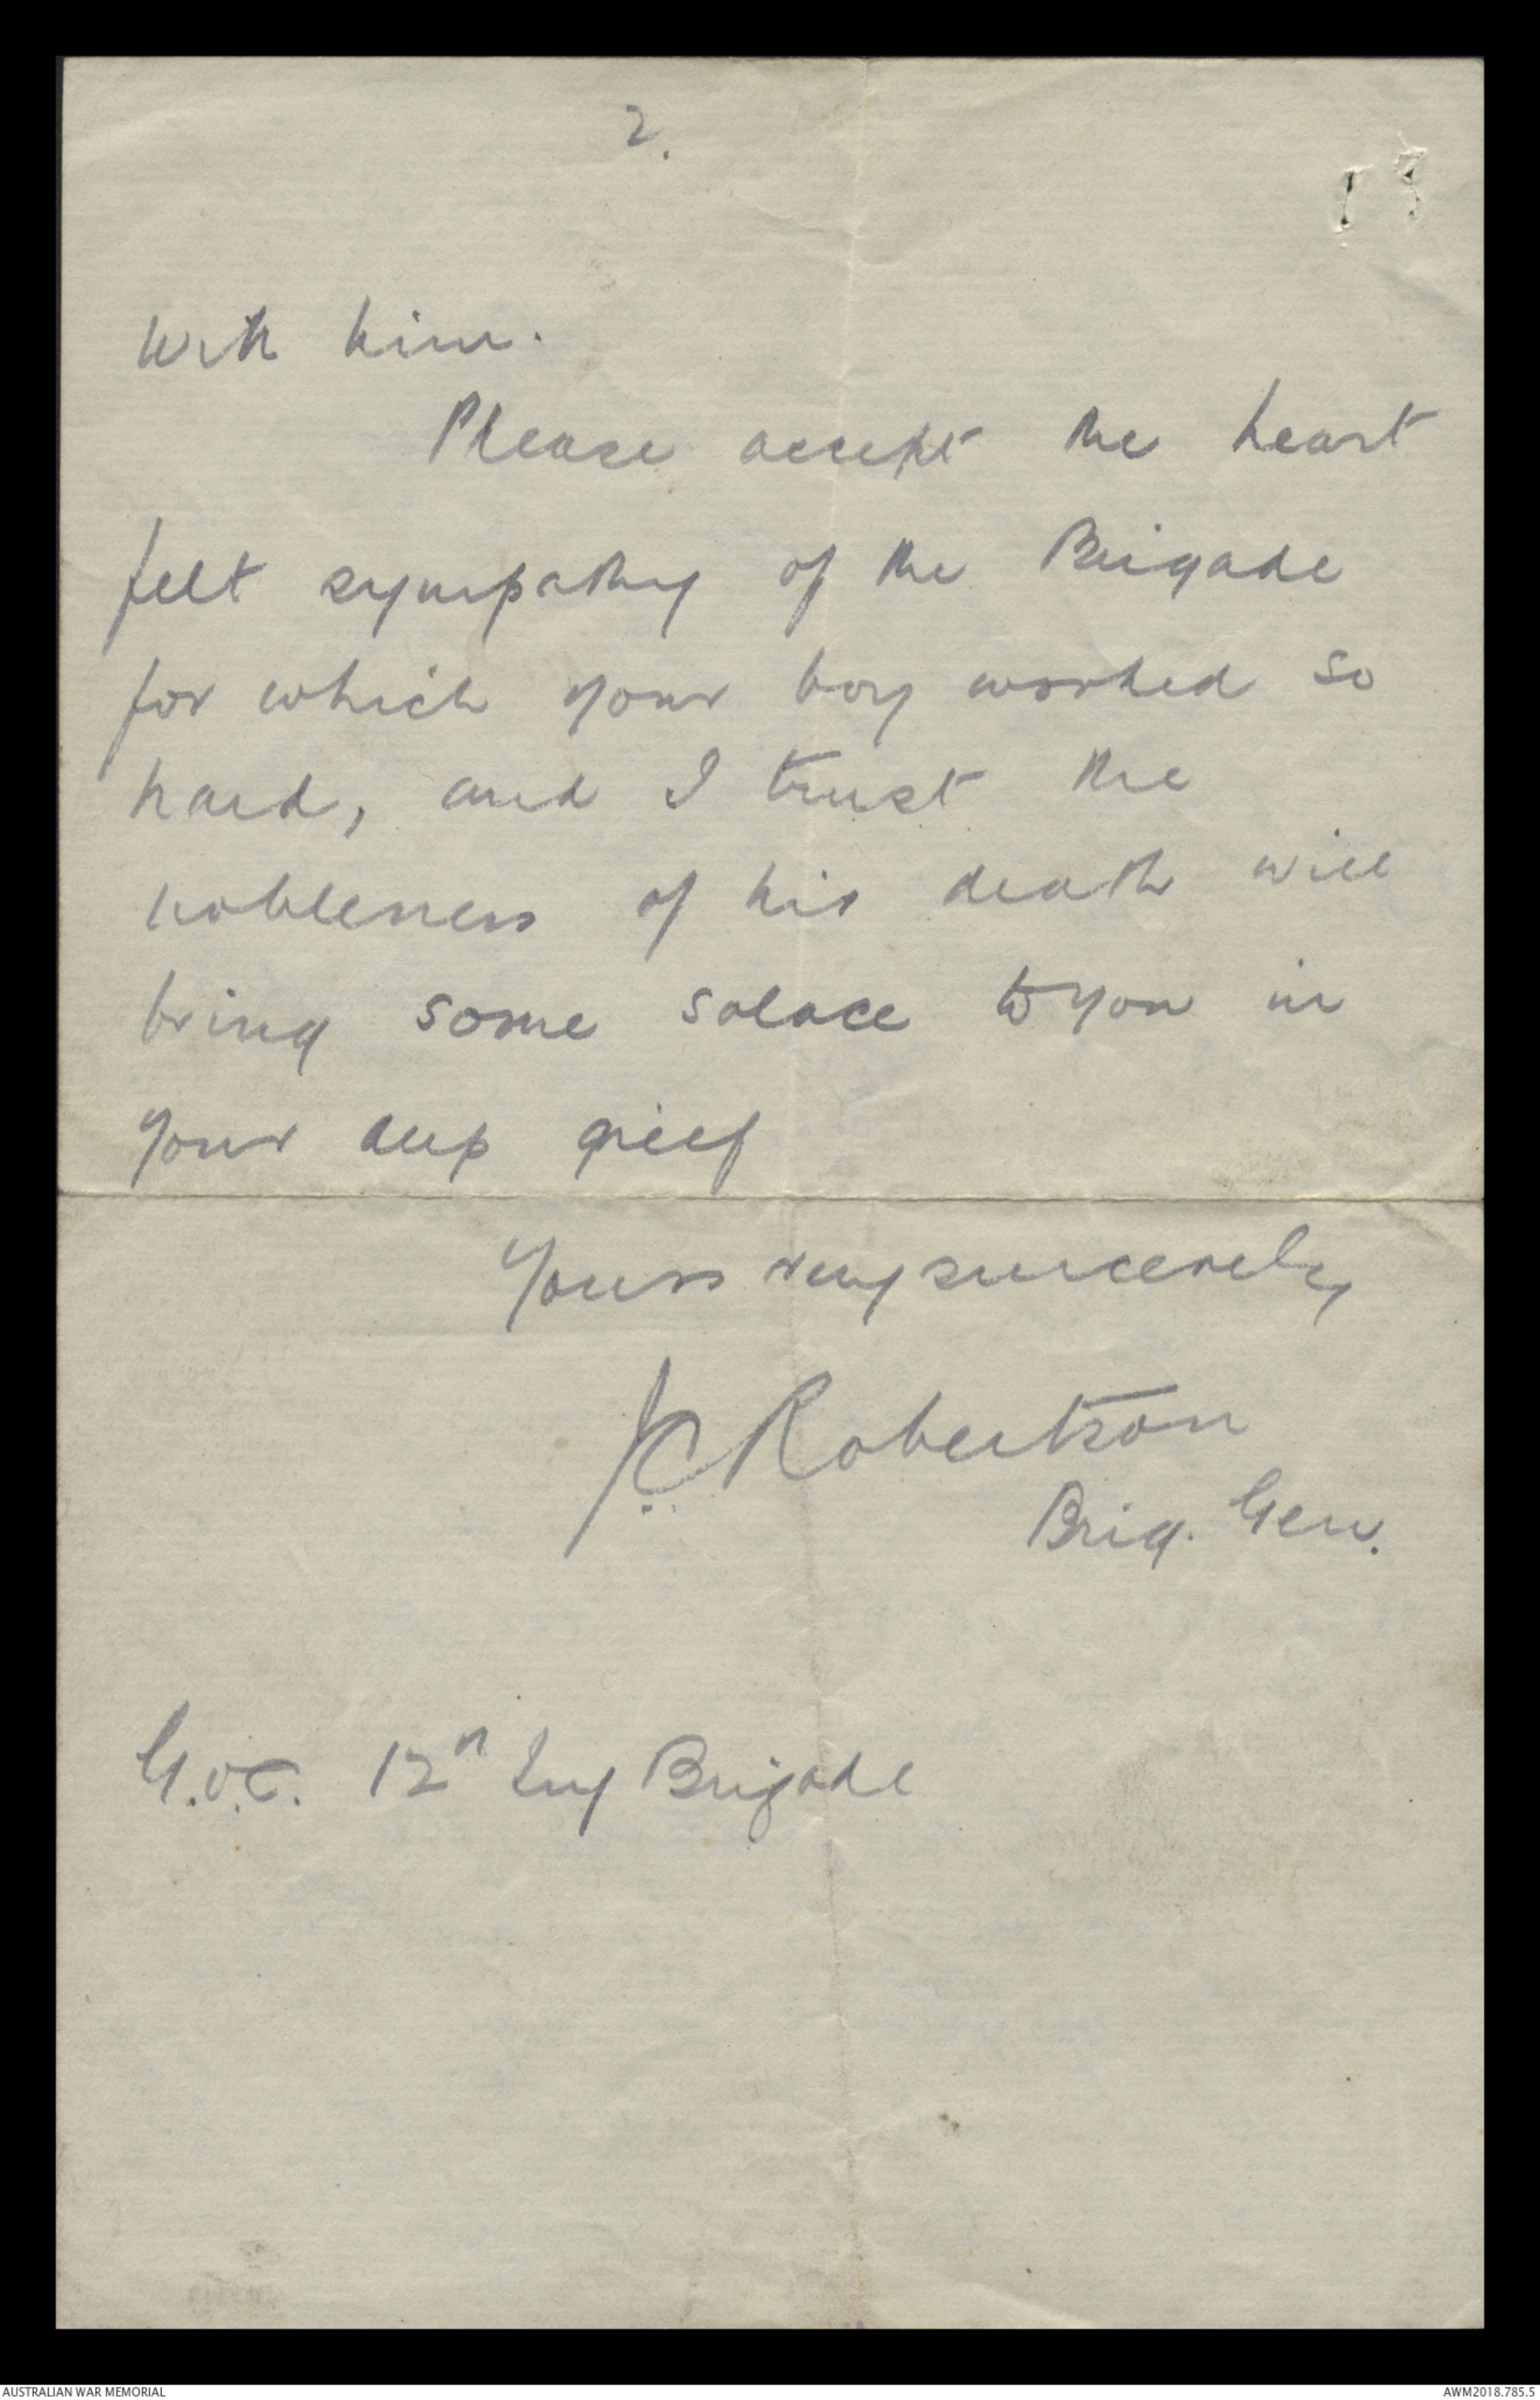 2.
with him.
Please accept the heart
felt sympathy of the Brigade
for which your boy worked so
hard, and I trust the
nobleness of his death will
bring some solace to you in
your deep grief
Yours very sincerely
J.C. Robertson
Brig. Gen.
G.O.C. 12th Inf Brigade
AUSTRALIAN WAR MEMORIAL
AWM2018.785.5